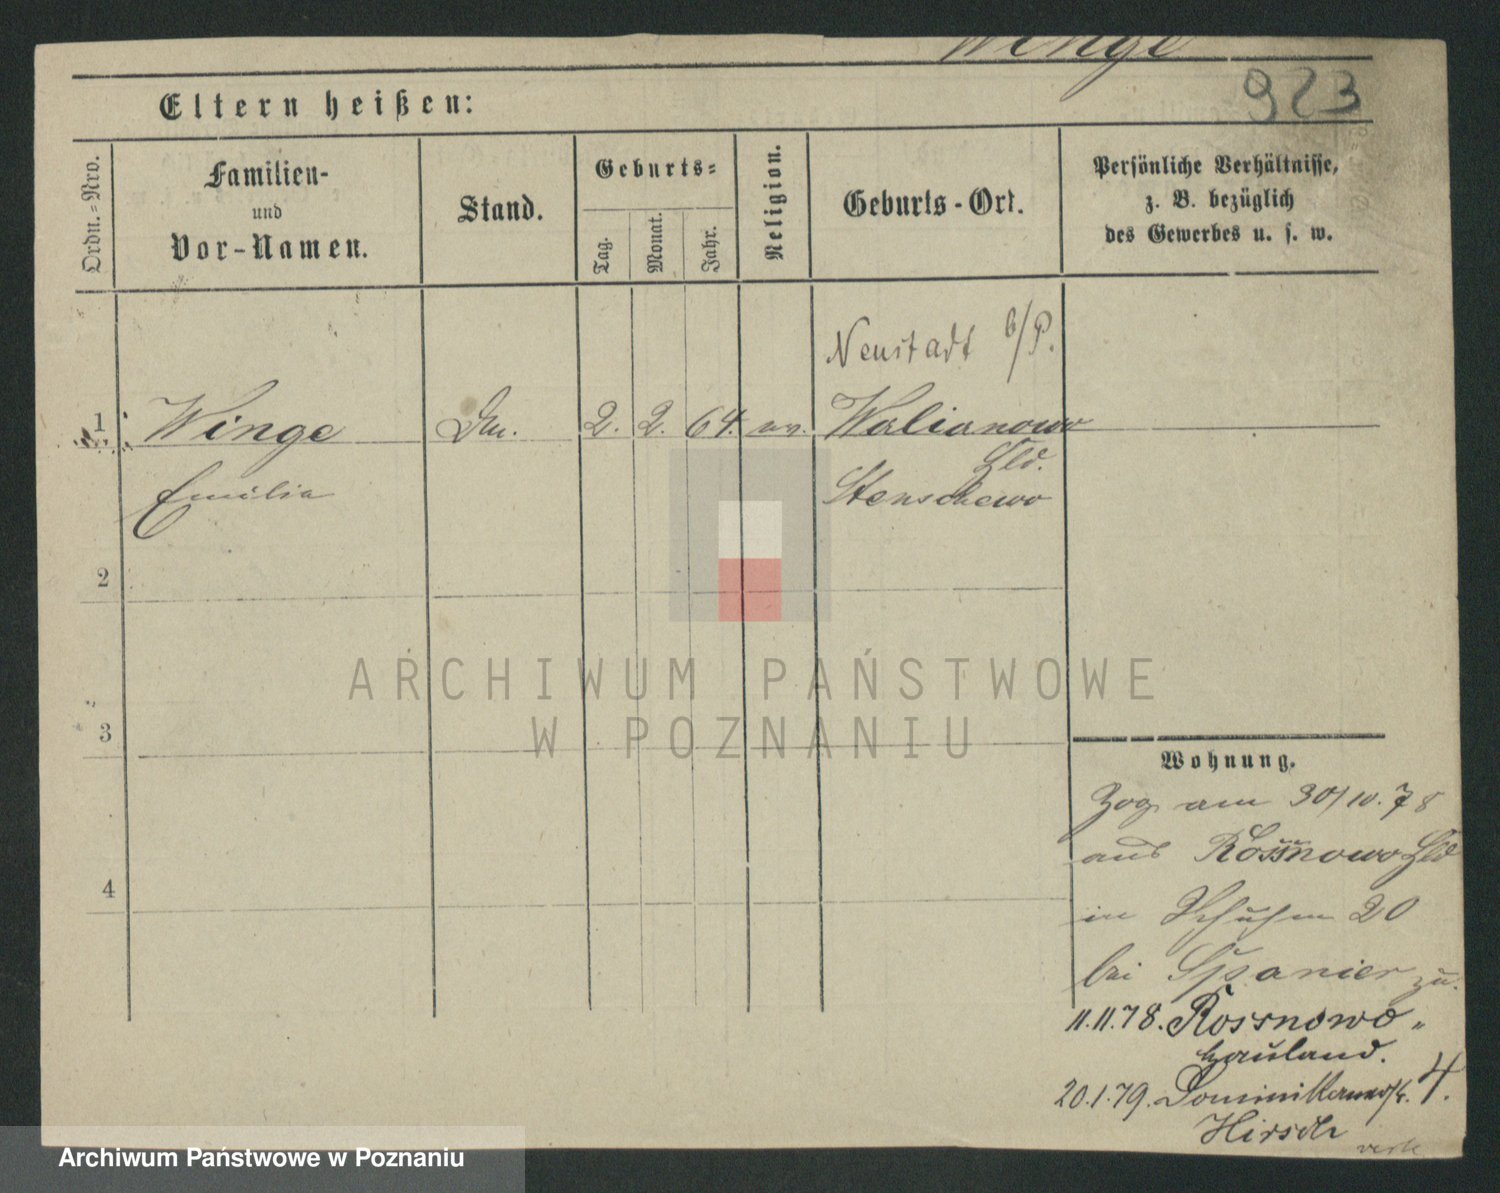 Winge
923
Eltern heißen:
Ordn.=Nro.
Familien-
und
Vor-Namen.
Stand.
Geburts=
Tag.
Monat.
Jahr.
Religion.
Geburts-Ort.
Persönliche Verhältnisse,
z. B. bezüglich
des Gewerbes u. s. w.
Neustadt b/P.
1 Winge 2. 2. 64. ev. Walianowo
Hld.
Emilia Stenschewo
2
3
4
Wohnung.
Zog am 30/10. 78
aus Rossnowo Hld
in 20
bei Spanier zu.
11.11.78. Rossnowo-
Hauland.
20.1.79. 4.
Hirsch
ARCHIWUM PAŃSTWOWE
W POZNANIU
Archiwum Państwowe w Poznaniu